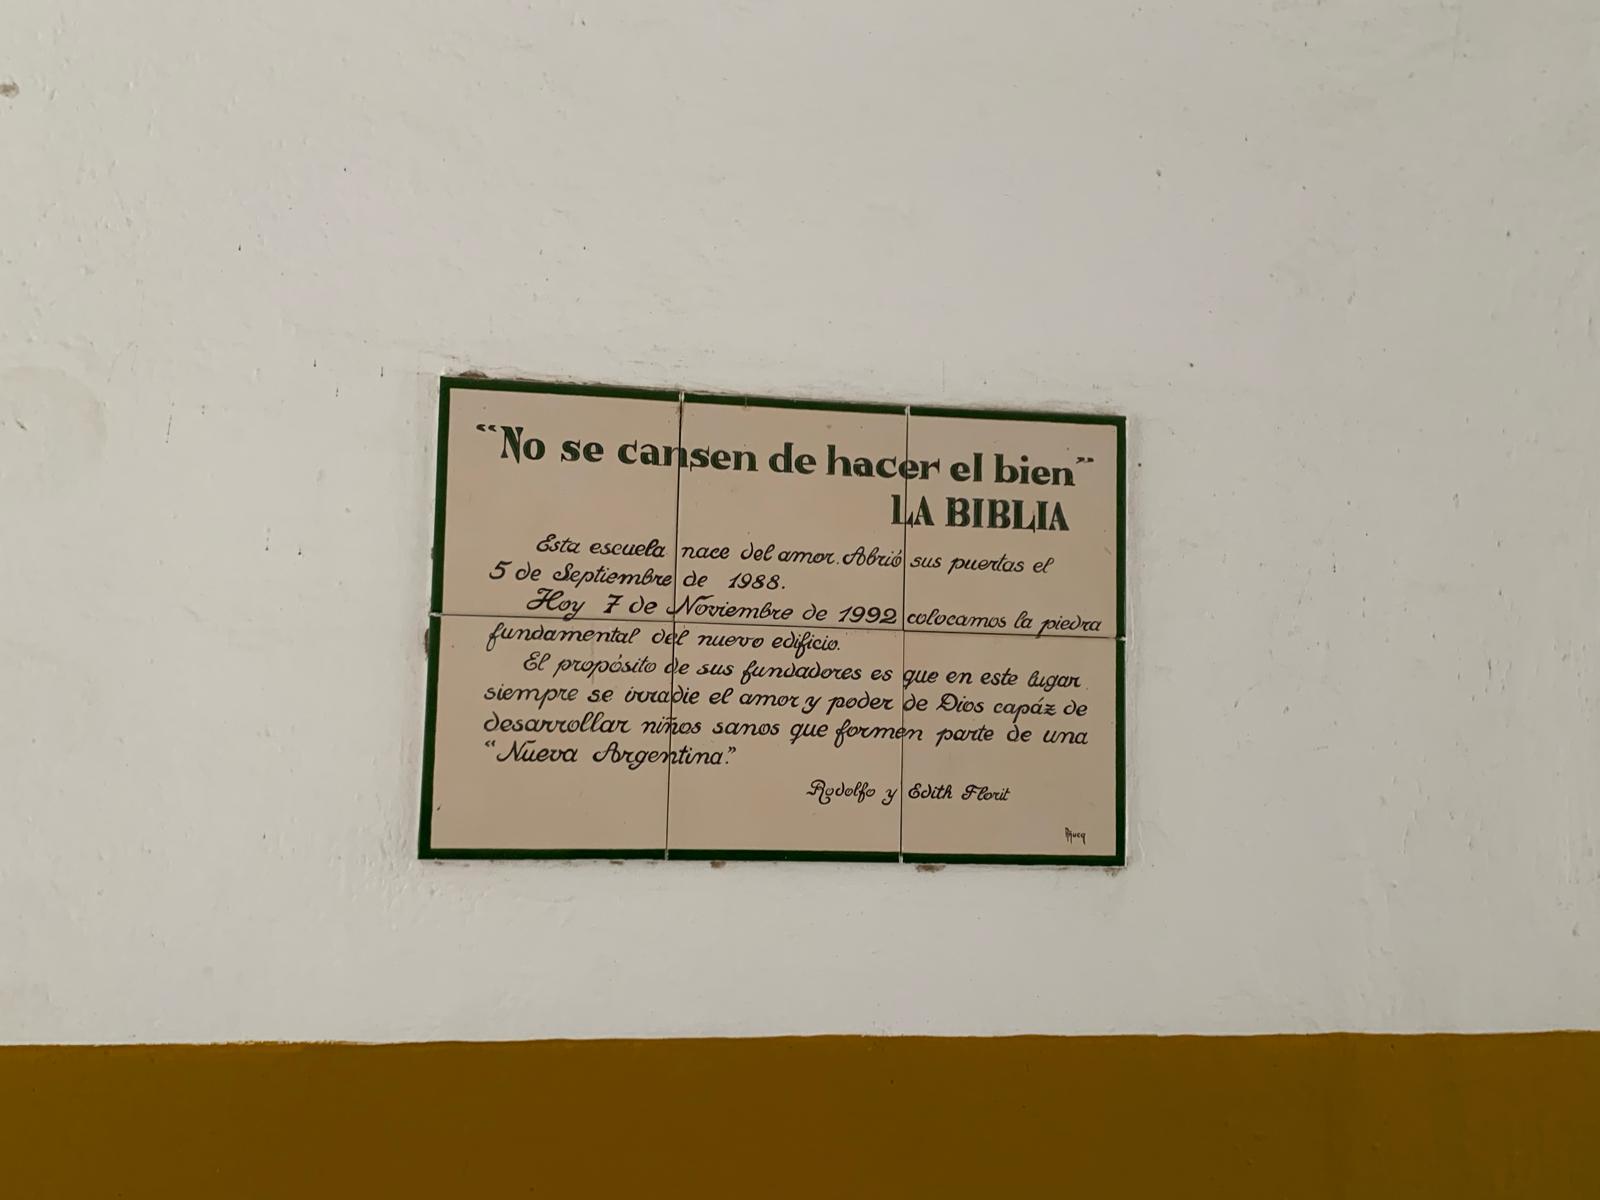 “No se cansen de hacer el bien”
LA BIBLIA
Esta escuela nace del amor. Abrió sus puertas el
5 de Septiembre de 1988.
Hoy 7 de Noviembre de 1992 colocamos la piedra
fundamental del nuevo edificio.
El propósito de sus fundadores es que en este lugar
siempre se irradie el amor y poder de Dios capáz de
desarrollar niños sanos que formen parte de una
“Nueva Argentina”.
Rodolfo y Edith Florit